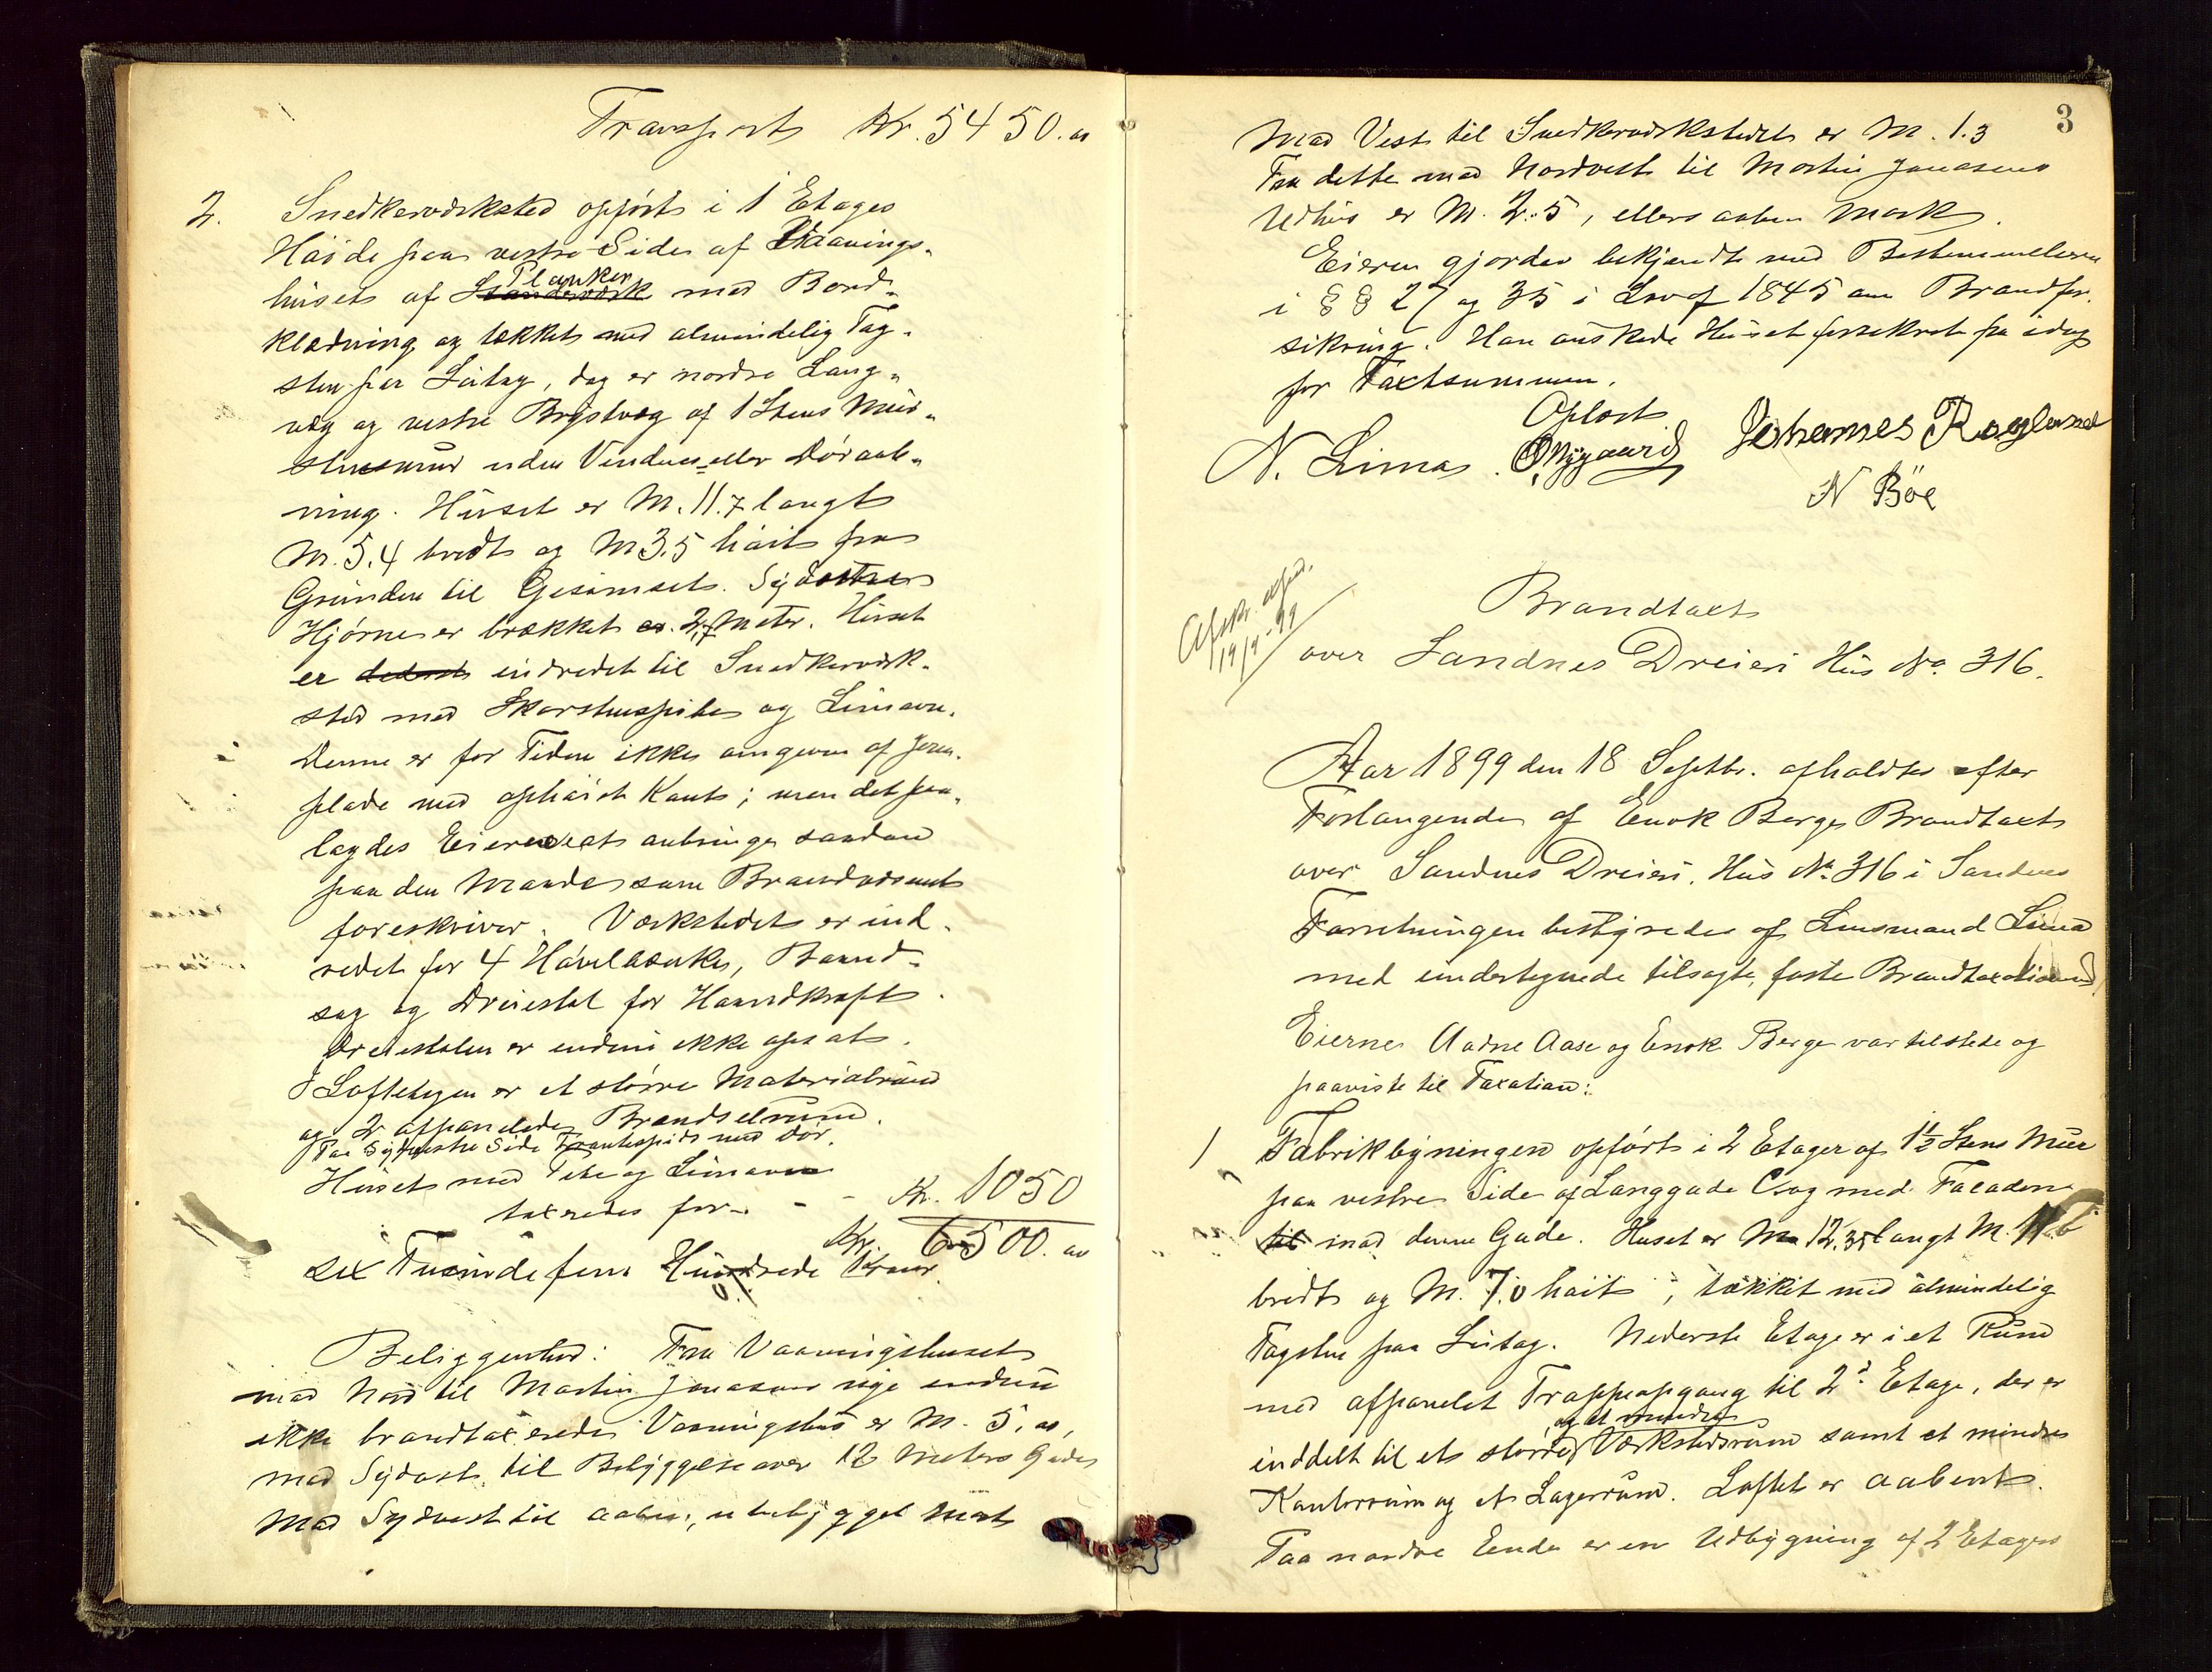 Transport Kr. 5450.00
2. Snedkerværksted opført i 1 Etages
Høide paa vestre Side af Vaanings-
huset af Planker med Bord-
klædning og tækket med almindelig Tag-
sten paa Sutag, dog er nordre Lang-
væg og vestre Brystvæg af 1 Stens Mur-
stensmur uden Vindues- eller Døraab-
ning. Huset er M. 11.7 langt
M. 5.4 bredt og M 3.5 høit fra
Grunden til Gesimset. Sydøstre
Hjørne er brækket 2,7 Meter. Huset
er indredet til Snedkerværk-
sted med Skorstenspibe og Limovn.
Denne er for Tiden ikke omgiven af Jern-
plade med ophøiet Kant; men det paa-
lagdes Eieren at anbringe saadan
paa den Maade som Brandvæsenet
foreskriver. Værkstedet er ind-
redet for 4 Høvlbænke, Baand-
sag og Dreiestol for Haandkraft.
Dreiestolen er endnu ikke opsat.
I Loftetagen er et større Materialrum
og 2 afpanelede Brændselrum.
Paa sydvestre Side Frontespids med Dør.
Huset med Pibe og Limovn
taxeredes for - - Kr. 1050
Kr. 6500.00
sex Tusinde fem Hundrede Kroner
Beliggenhed: Fra Vaaningshuset
mod Nord til Martin Jonasens nye endnu
ikke brandtaxerede Vaaningshus er M. 5.00,
mod Sydost til Bebyggelse over 12 Meters Gade
Mod Sydvest til aaben, ubebygget Mark
3
Mod Vest til Snedkerværkstedet er M. 1.3
Fra dette mod Nordvest til Martin Jonasens
Udhus er M. 2.5, ellers aaben Mark.
Eieren gjordes bekjendt med Bestemmelserne
i §§ 27 og 35 i Lov af 1845 om Brandfor-
sikring. Han ønskede Huset forsikret fra idag
for Taxtsummen.
Oplæst
N. Lima. O. Nygaard Johannes Rogland
N Böe
19/9-99
Brandtaxt
over Sandnes Dreieri Hus No. 316.
Aar 1899 den 18 Septbr. afholdtes efter
Forlangende af Enok Berge Brandtaxt
over Sandnes Dreieri, Hus No. 316 i Sandnes
Forretningen bestyredes af Lensmand Lima
med undertegnede tilsagte, faste Brandtaxationsmænd
Eierne Aadne Aase og Enok Berge var tilstede og
paaviste til Taxation:
1 Fabrikbygningen opført i 2 Etager af 1½ Stens Mur
paa vestre Side af Langgade og med Facaden
mod denne Gade. Huset er M 12.35 langt M.
bredt og M. 7.0 høit, tækket med almindelig
Tagsten paa Sutag. Nederste Etage er i et Rum
med afpanelet Trappeopgang til 2d Etage, der er
og et mindre
inddelt til et større Værkstedsrum samt et mindre
Kontorrum og et Lagerrum. Loftet er aabent.
Paa nordre Ende er en Udbygning af 2 Etages